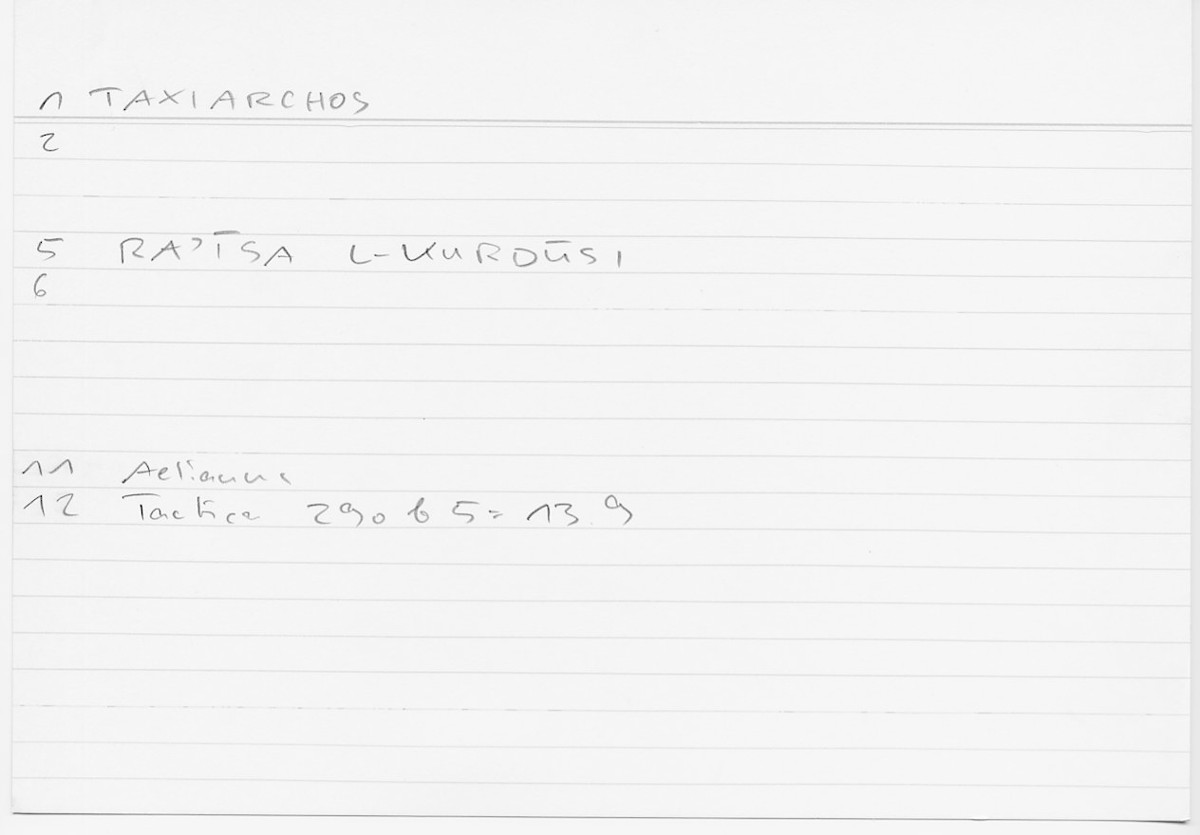 1 TAXIARCHOS
2
5 RA'ĪSA L-KURDŪSI
6
11 Aelianus
12 Tactica 290 b 5 = 13.9